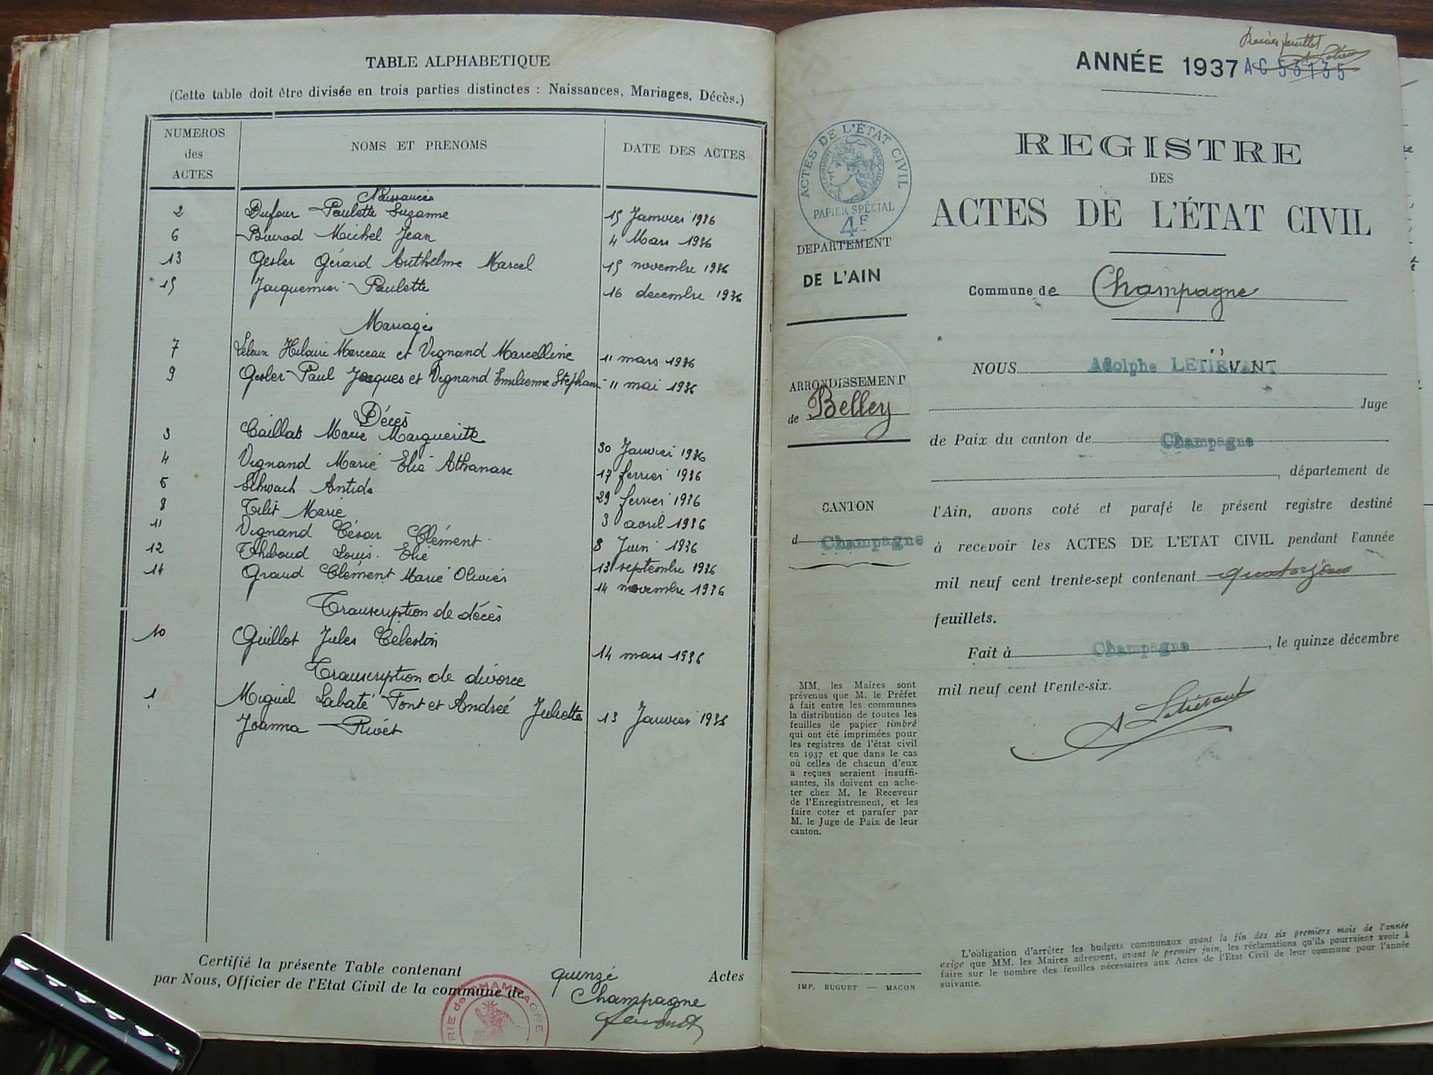 TABLE ALPHABETIQUE
(Cette table doit être divisée en trois parties distinctes : Naissances, Mariages, Décès.)
NUMEROS des ACTES NOMS ET PRENOMS DATE DES ACTES
Naissances
2 Dufour Paulette Suzanne 15 Janvier 1936
6 Buvod Michel Jean 4 Mars 1936
13 Gesler Gerard Anthelme Marcel 15 novembre 1936
15 Jacquemier Paulette 16 decembre 1936
Mariages
7 Hilaire Marceau et Vignand Marcelline 11 mars 1936
9 Gesler Paul Jacques et Vignand Emilienne Stephani 11 mai 1936
Décès
3 Caillat Marie Marguerite 30 Janvier 1936
4 Vignand Marie Elie Athanase 17 fevrier 1936
5 Schwach Antide 29 fevrier 1936
8 Tilit Marie 3 avril 1936
11 Vignand César Clément 8 Juin 1936
12 Thiboud Louis Elie 13 septembre 1936
14 Graud Clément Marie Olivier 14 novembre 1936
Transcription de décès
10 Guillot Jules Célestin 14 mars 1936
Transcription de divorce
1 Miguel Labaté Font et Andrée Juliette 13 Janvier 1936
Joanna Rivet
Certifié la présente Table contenant quinze Actes
par Nous, Officier de l'Etat Civil de la commune de Champagne
RIE de CHAMPAGNE
ANNÉE 1937
AC 55135
REGISTRE
DES
ACTES DE L'ÉTAT CIVIL
Commune de Champagne
ACTES DE L'ÉTAT CIVIL
PAPIER SPÉCIAL
4F
DEPARTEMENT
DE L'AIN
ARRONDISSEMENT
de Belley
CANTON
d Champagne
NOUS Adolphe LETIEVANT
Juge
de Paix du canton de Champagne
, département de
l'Ain, avons coté et parafé le présent registre destiné
à recevoir les ACTES DE L'ETAT CIVIL pendant l'année
mil neuf cent trente-sept contenant
feuillets.
Fait à Champagne, le quinze décembre
mil neuf cent trente-six.
A Letiévant
MM. les Maires sont
prévenus que M. le Préfet
à fait entre les communes
la distribution de toutes les
feuilles de papier timbré
qui ont été imprimées pour
les registres de l'état civil
en 1937 et que dans le cas
où celles de chacun d'eux
a reçues seraient insuffi-
santes, ils doivent en ache-
ter chez M. le Receveur
de l'Enregistrement, et les
faire coter et parafer par
M. le Juge de Paix de leur
canton.
IMP. BUGUET — MACON
L'obligation d'arrêter les budgets communaux avant la fin des six premiers mois de l'année
exige que MM. les Maires adressent, avant le premier juin, les réclamations qu'ils pourraient avoir à
faire sur le nombre des feuilles nécessaires aux Actes de l'Etat Civil de leur commune pour l'année
suivante.